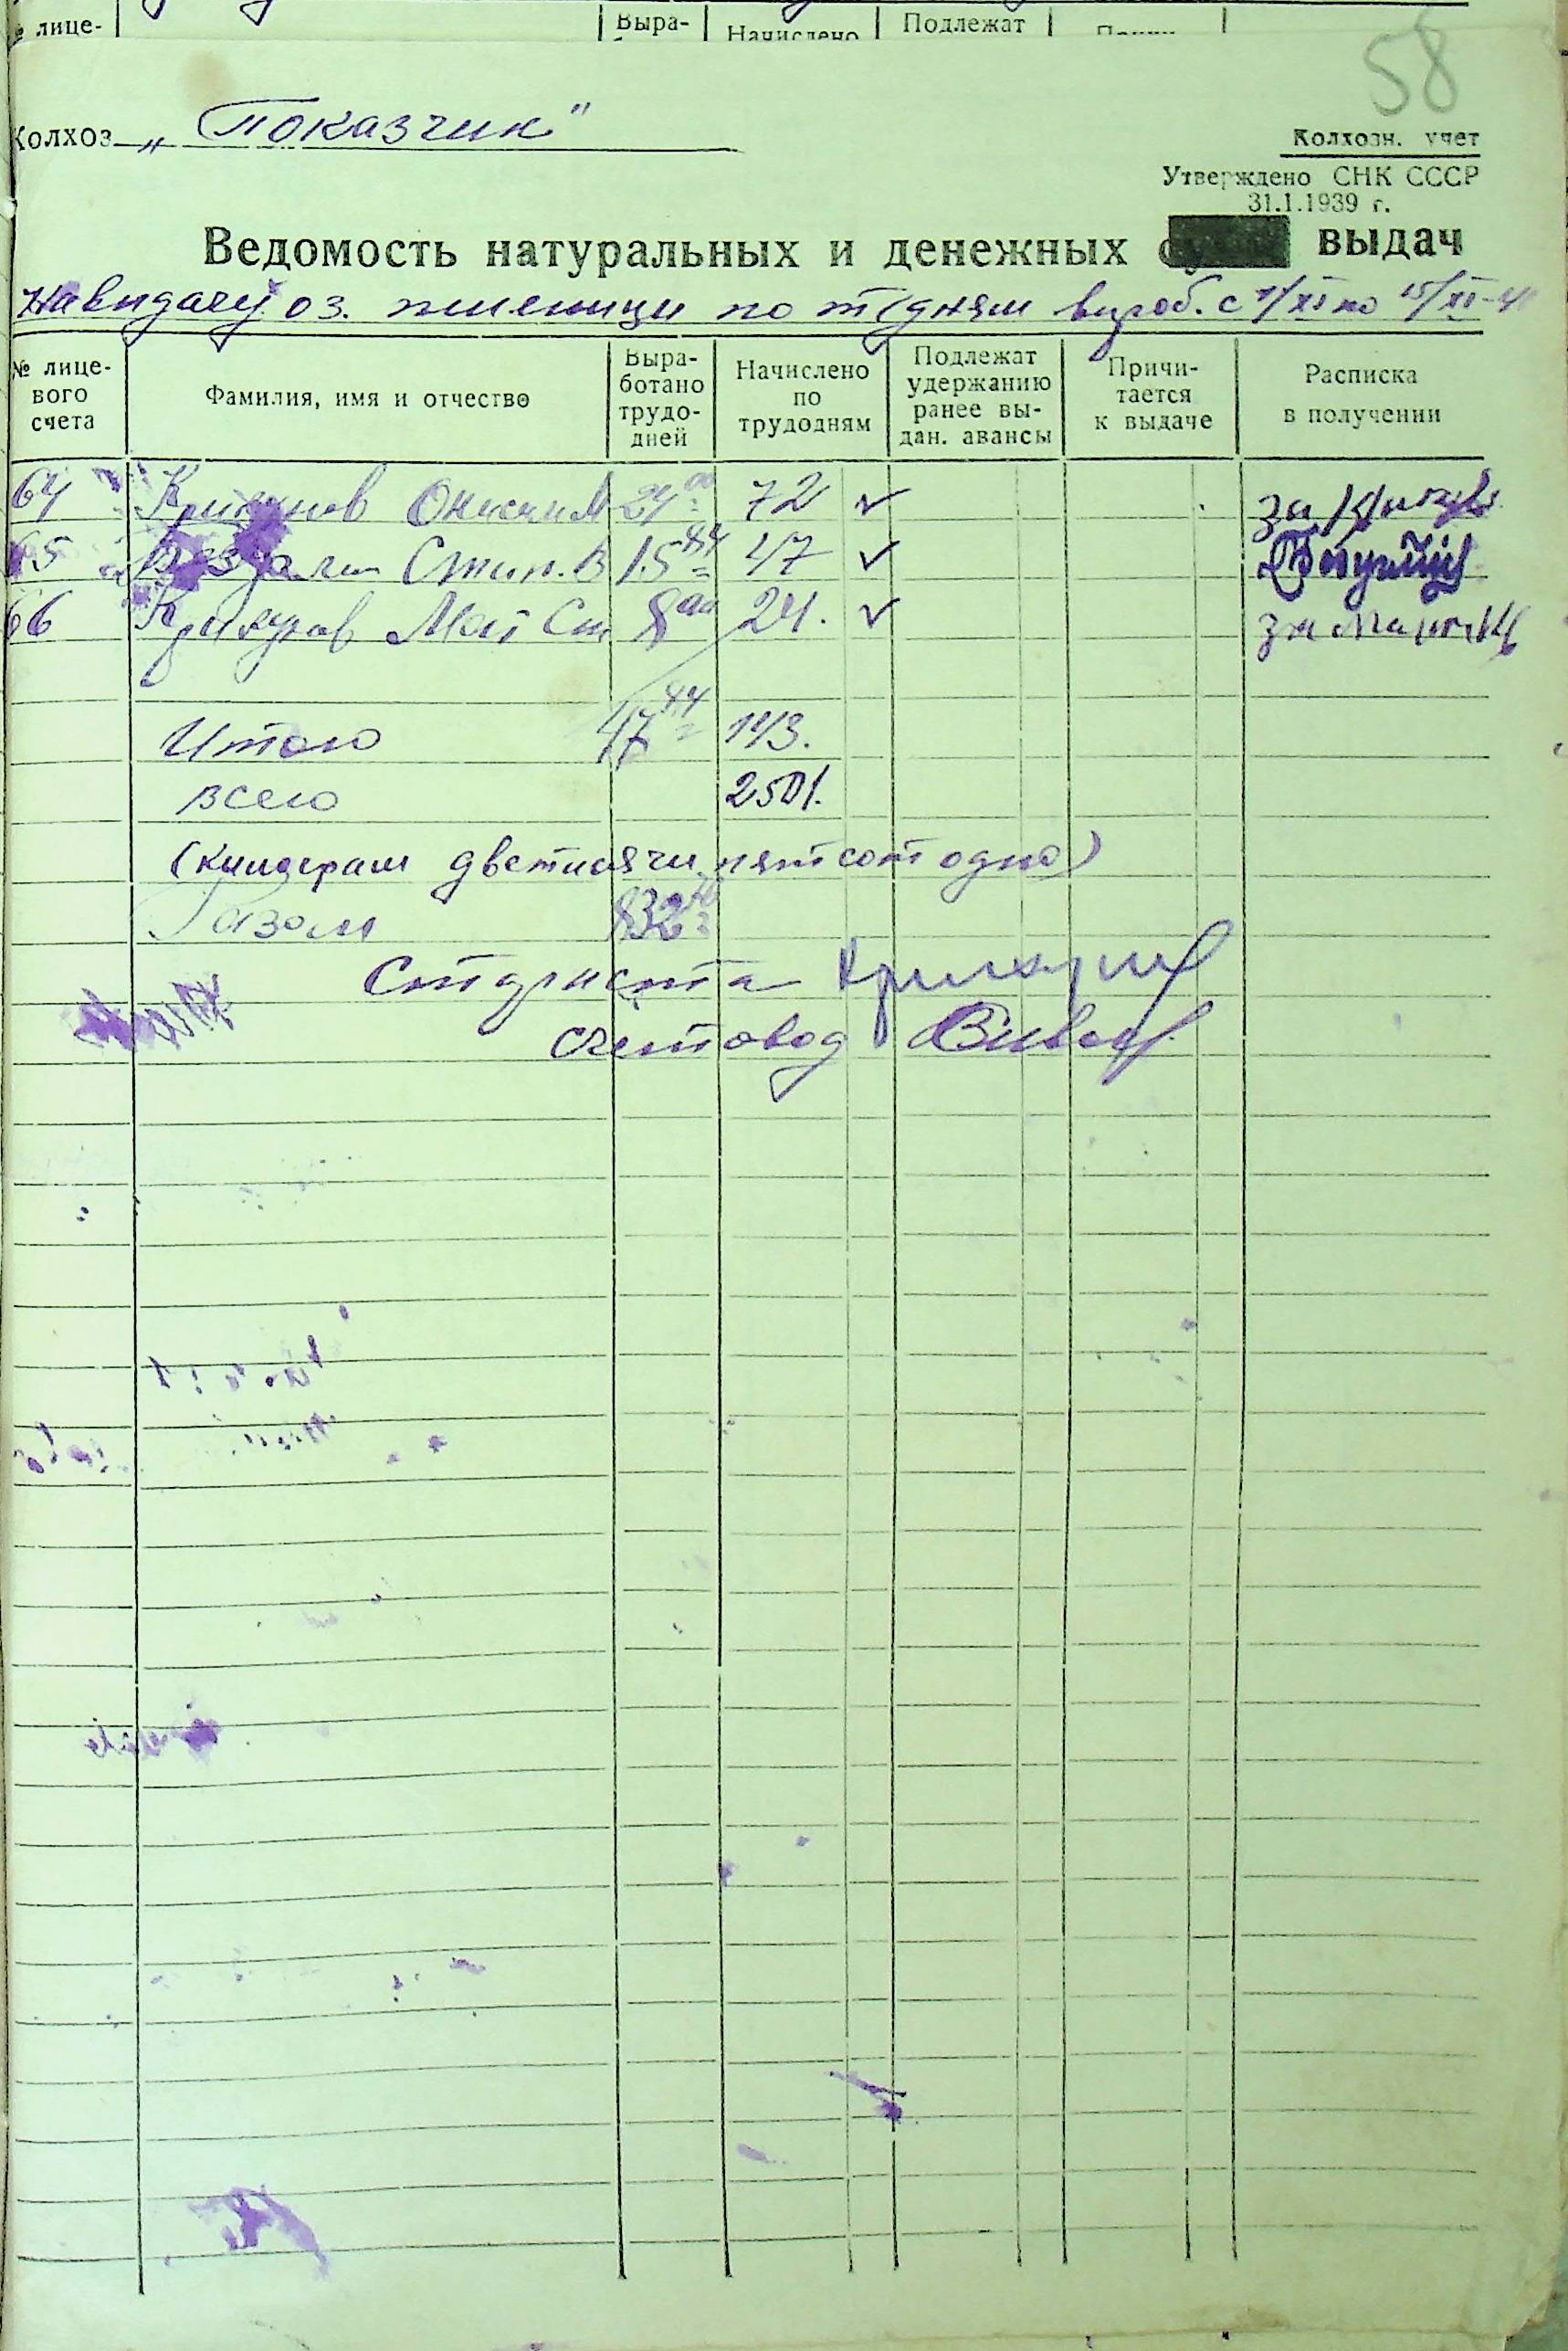 № лице- Выра- Начислено Подлежат
58
Колхоз „Показчик"
Колхозн. учет
Утверждено СНК СССР
31.1.1939 г.
Ведомость натуральных и денежных выдач
На видачу оз. пшеници по т/дням вироб. с 1/XI по 15/XI-41
№ лице-
вого
счета
Фамилия, имя и отчество
Выра-
ботано
трудо-
дней
Начислено
по
трудодням
Подлежат
удержанию
ранее вы-
дан. авансы
Причи-
тается
к выдаче
Расписка
в получении
64 24 00 72 ✓ за
65 Стип. В 15 44 47 ✓
66 Крикунов Мат Ст 8 00 24. ✓ за
Итого 47 44 143.
всего 2501.
(килограм дветисячи пятсот одно)
Разом 832
Стариста
счетовод